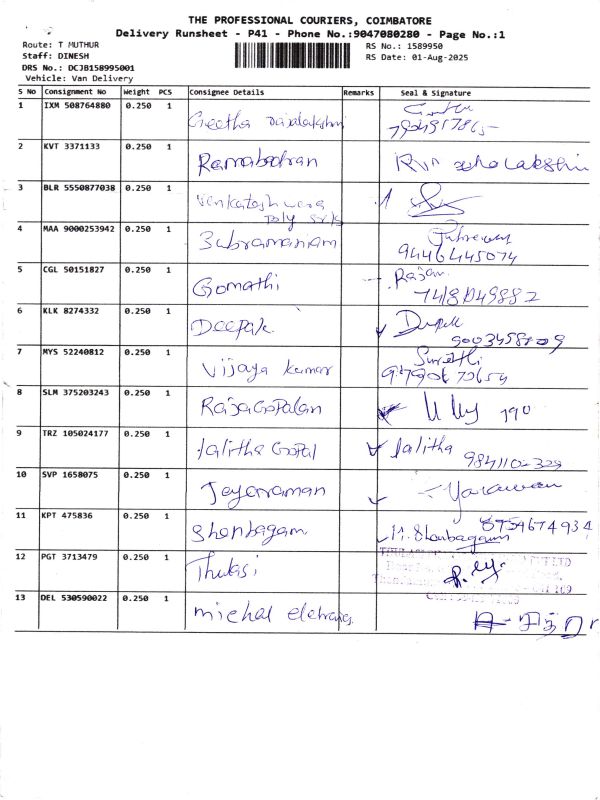 THE PROFESSIONAL COURIERS, COIMBATORE
Delivery Runsheet - P41 - Phone No.:9047080280 - Page No.:1
Route: T MUTHUR
RS No.: 1589950
Staff: DINESH
RS Date: 01-Aug-2025
DRS No.: DCJB158995001
Vehicle: Van Delivery
S No Consignment No Weight PCS Consignee Details Remarks Seal & Signature
1 IXM 508764880 0.250 1 Geetha rajalakshmi
2 KVT 3371133 0.250 1 Ramabadran
3 BLR 5550877038 0.250 1 Venkateshwara
poly
4 MAA 9000253942 0.250 1 Subramaniam
9446445074
5 CGL 50151827 0.250 1 Gomathi Rajan
6 KLK 8274332 0.250 1 Deepak
7 MYS 52240812 0.250 1 Vijaya kumar
8 SLM 375203243 0.250 1 RajaGopalan
9 TRZ 105024177 0.250 1 lalitha Gopal lalitha
10 SVP 1658075 0.250 1 Jeyaraman
8754674934
11 KPT 475836 0.250 1 Shenbagam
12 PGT 3713479 0.250 1 Thulasi
13 DEL 530590022 0.250 1 michal